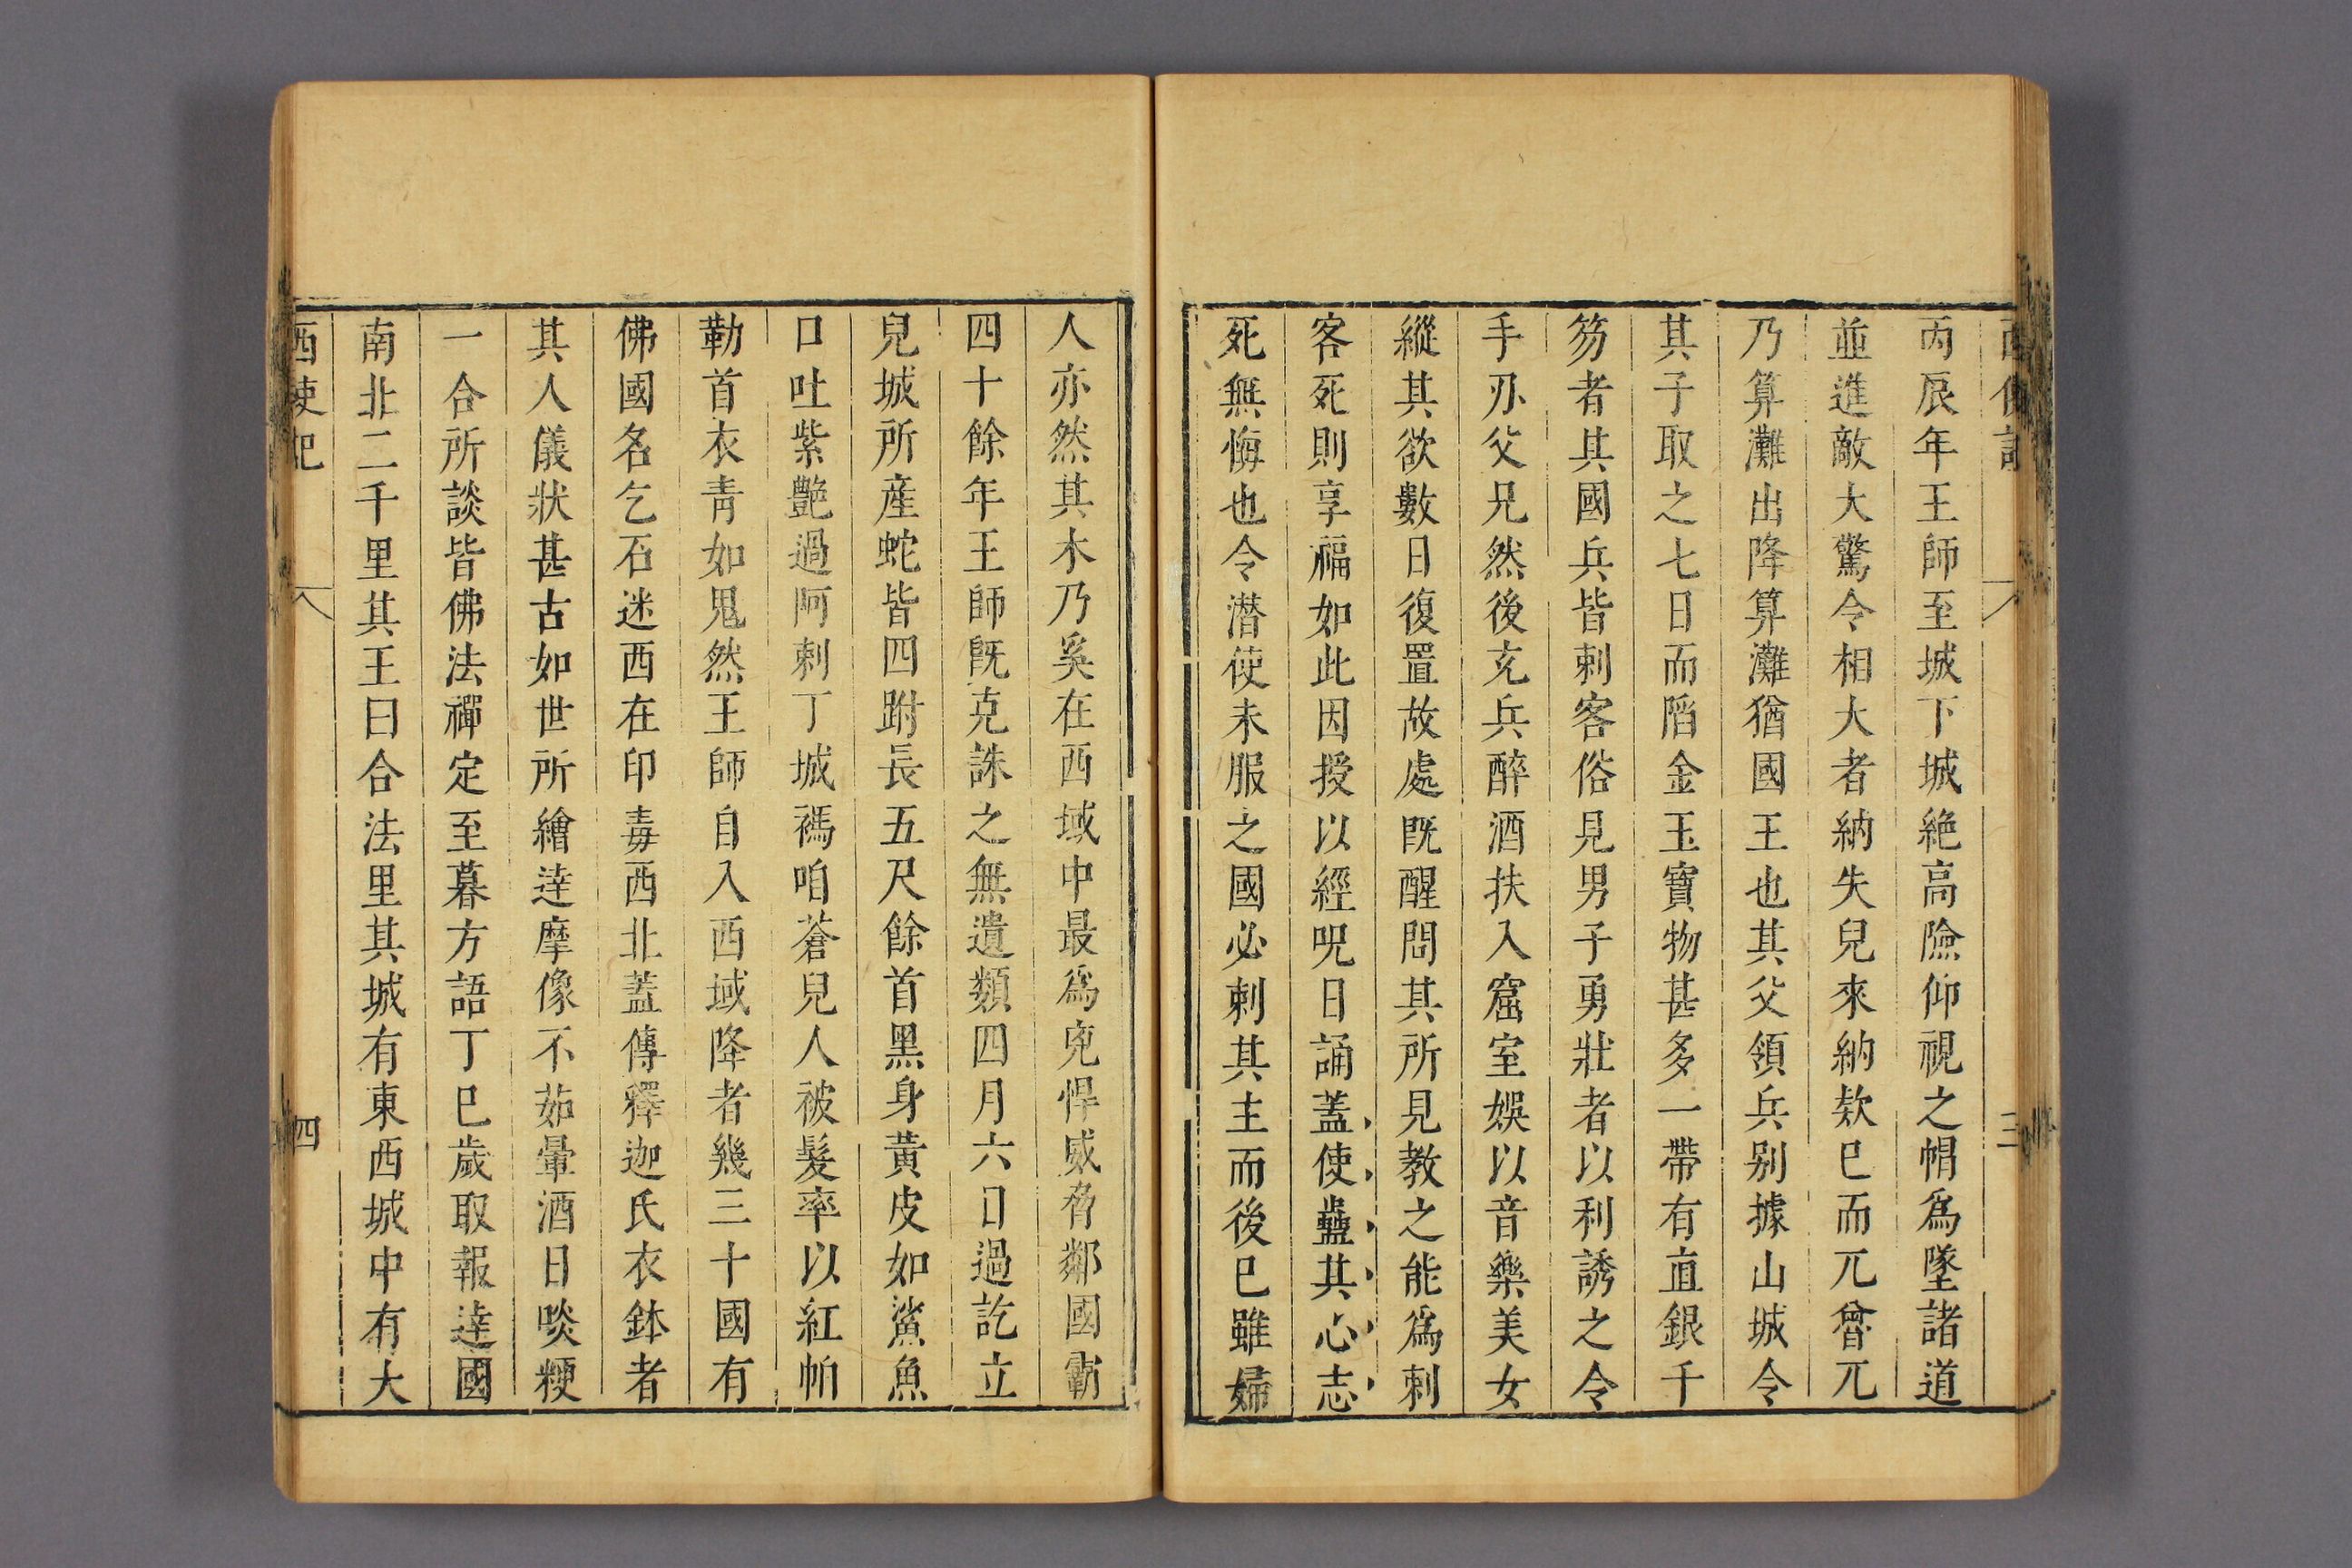 西使記
三
丙辰年王師至城下城絶高險仰視之帽爲墜諸道
並進敵大驚令相大者納失兒來納欵已而兀曾兀
乃算灘出降算灘猶國王也其父領兵别據山城令
其子取之七日而陷金玉寶物甚多一帶有直銀千
笏者其國兵皆刺客俗見男子勇壯者以利誘之令
手刃父兄然後充兵醉酒扶入窟室娛以音樂美女
縱其欲數日復置故處既醒問其所見教之能爲刺
客死則享福如此因授以經呪日誦蓋使蠱其心志
死無悔也令潜使未服之國必刺其主而後已雖婦
人亦然其木乃奚在西域中最爲兇悍威脅鄰國霸
四十餘年王師既克誅之無遺類四月六日過訖立
兒城所産蛇皆四跗長五尺餘首黑身黃皮如鯊魚
口吐紫艷過阿剌丁城禡咱蒼兒人被髮率以紅帕
勒首衣青如鬼然王師自入西域降者幾三十國有
佛國名乞石迷西在印毒西北蓋傳釋迦氏衣鉢者
其人儀狀甚古如世所繪達摩像不茹葷酒日啖粳
一合所談皆佛法禪定至暮方語丁巳歲取報達國
南北二千里其王曰合法里其城有東西城中有大
西使記
四